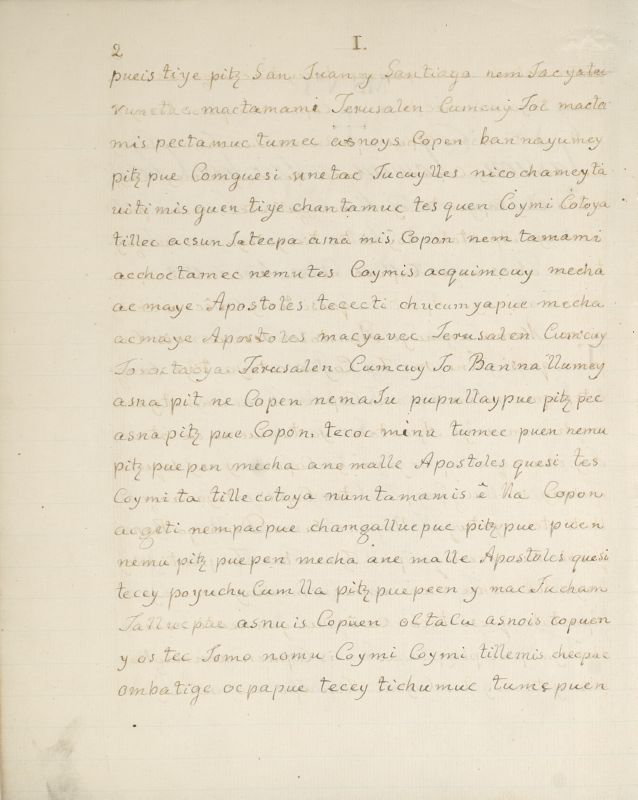 2 I.
pueis tiye pitz San Juan y Santiago nem
mactamami Jerusalen Cumcuy Tol macta
mis pectamuc tumec asnoys Copen bannayumey
pitz pue Comguesi unetac Jucuylles nicochameyta
uitimis guen tiye chantamuc tes quen Coymi Cotoya
tillec acsun Jatecpa asna mis Copon nem tamami
acchoctamec nemutes Coymis acquimcuy mecha
ac maye Apostoles tececti chucumyapue mecha
acmaye Apostoles macyavec Jerusalen Cumcuy
To octaoya Jerusalen Cumcuy To Bannallumey
asna pit ne Copen nema Ju pupullaypue pitz pec
asna pitz pue Copon, tecoc mina tumec puen nemu
pitz puepen mecha ane malle Apostoles quesi tes
Coymi ta tille cotoya numtamamis ê lla Copon
acgeti nempacpue changallucpuc pitz pue puen
nemu pitz puepen mecha ane malle Apostoles quesi
tecey poyuchu Cumlla pitz puepeen y mac Jucham
Tallucpae asnu is Copuen oltalu asnois copuen
y os tec Jomo nomu Coymi Coymi tillemis checpue
ombatige ocpapue tecey tichumuc tumepuen